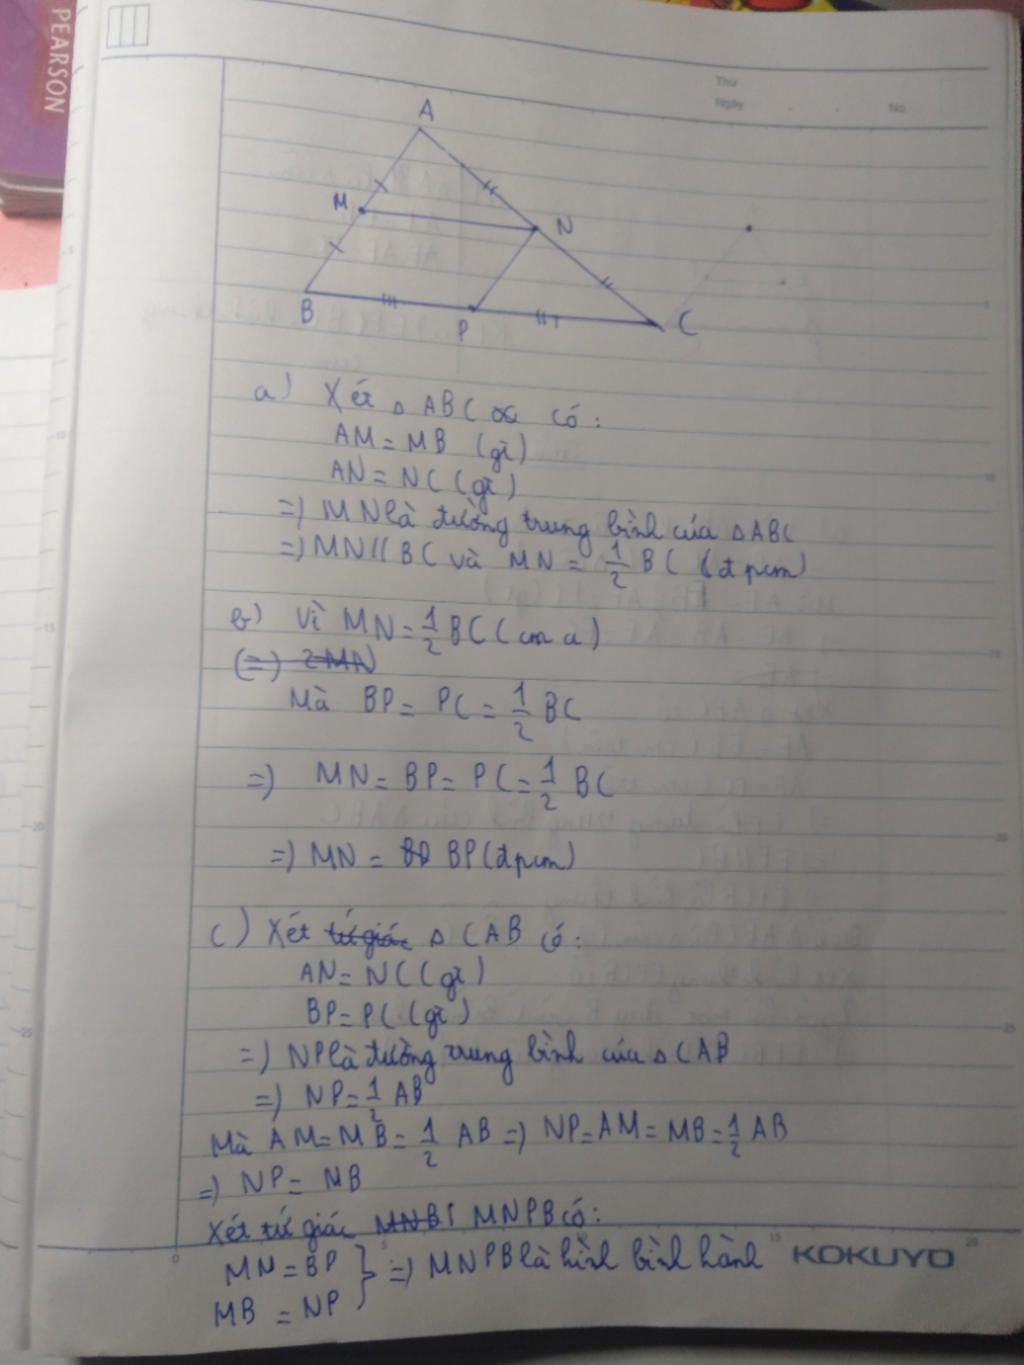 PEARSON
Thứ
Ngày
No.
A
M
N
B
P
C
a) Xét △ ABC có:
AM = MB (gt)
AN = NC (gt)
=) MN là đường trung bình của △ABC
=) MN // BC và MN = 1/2 BC (đpcm)
b) Vì MN = 1/2 BC (cm a)
(=) 2MN
Mà BP = PC = 1/2 BC
=) MN = BP = PC = 1/2 BC
=) MN = BP (đpcm)
c) Xét tứ giác △ CAB có:
AN = NC (gt)
BP = PC (gt)
=) NP là đường trung bình của △ CAB
=) NP = 1/2 AB
Mà AM = MB = 1/2 AB =) NP = AM = MB = 1/2 AB
=) NP = MB
Xét tứ giác MNB MNPB có:
MN = BP } =) MNPB là hình bình hành
MB = NP
KOKUYO